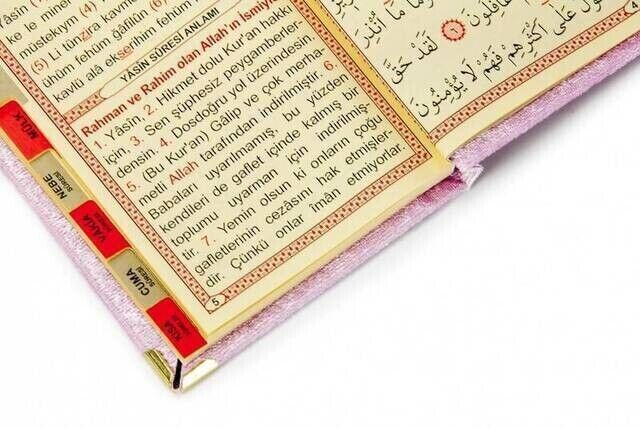 ke le miner
müstekıym (4)
(5) Li tünzira kavmen
ühüm fehüm ğafilün (6)
kavlü alâ ekserihim fehüm
YÂSİN SÛRESİ ANLAMI
Rahman ve Rahim olan Allah'ın ismiyle
1. Yâsîn, 2. Hikmet dolu Kur'an hakkı
için, 3. Sen şüphesiz peygamberler-
densin. 4. Dosdoğru yol üzerindesin.
5. (Bu Kur'an) Galip ve çok merha-
metli Allah tarafından indirilmiştir. 6.
Babaları uyarılmamış, bu yüzden
kendileri de gaflet içinde kalmış bir
toplumu uyarman için indirilmiş-
tir. 7. Yemin olsun ki onların çoğu
gafletlerinin cezasını hak etmişler-
dir. Çünkü onlar îmân etmiyorlar.
5
MÜLK
NEBE
SÛRESİ
VAKIA
SÛRESİ
CUMA
SÛRESİ
KISA
SÛRELER
مَا أُنْذِرَ
غَافِلُونَ ﴿٦﴾ لَقَدْ حَقَّ
الْقَوْلُ عَلَى أَكْثَرِهِمْ فَهُمْ لَا يُؤْمِنُونَ